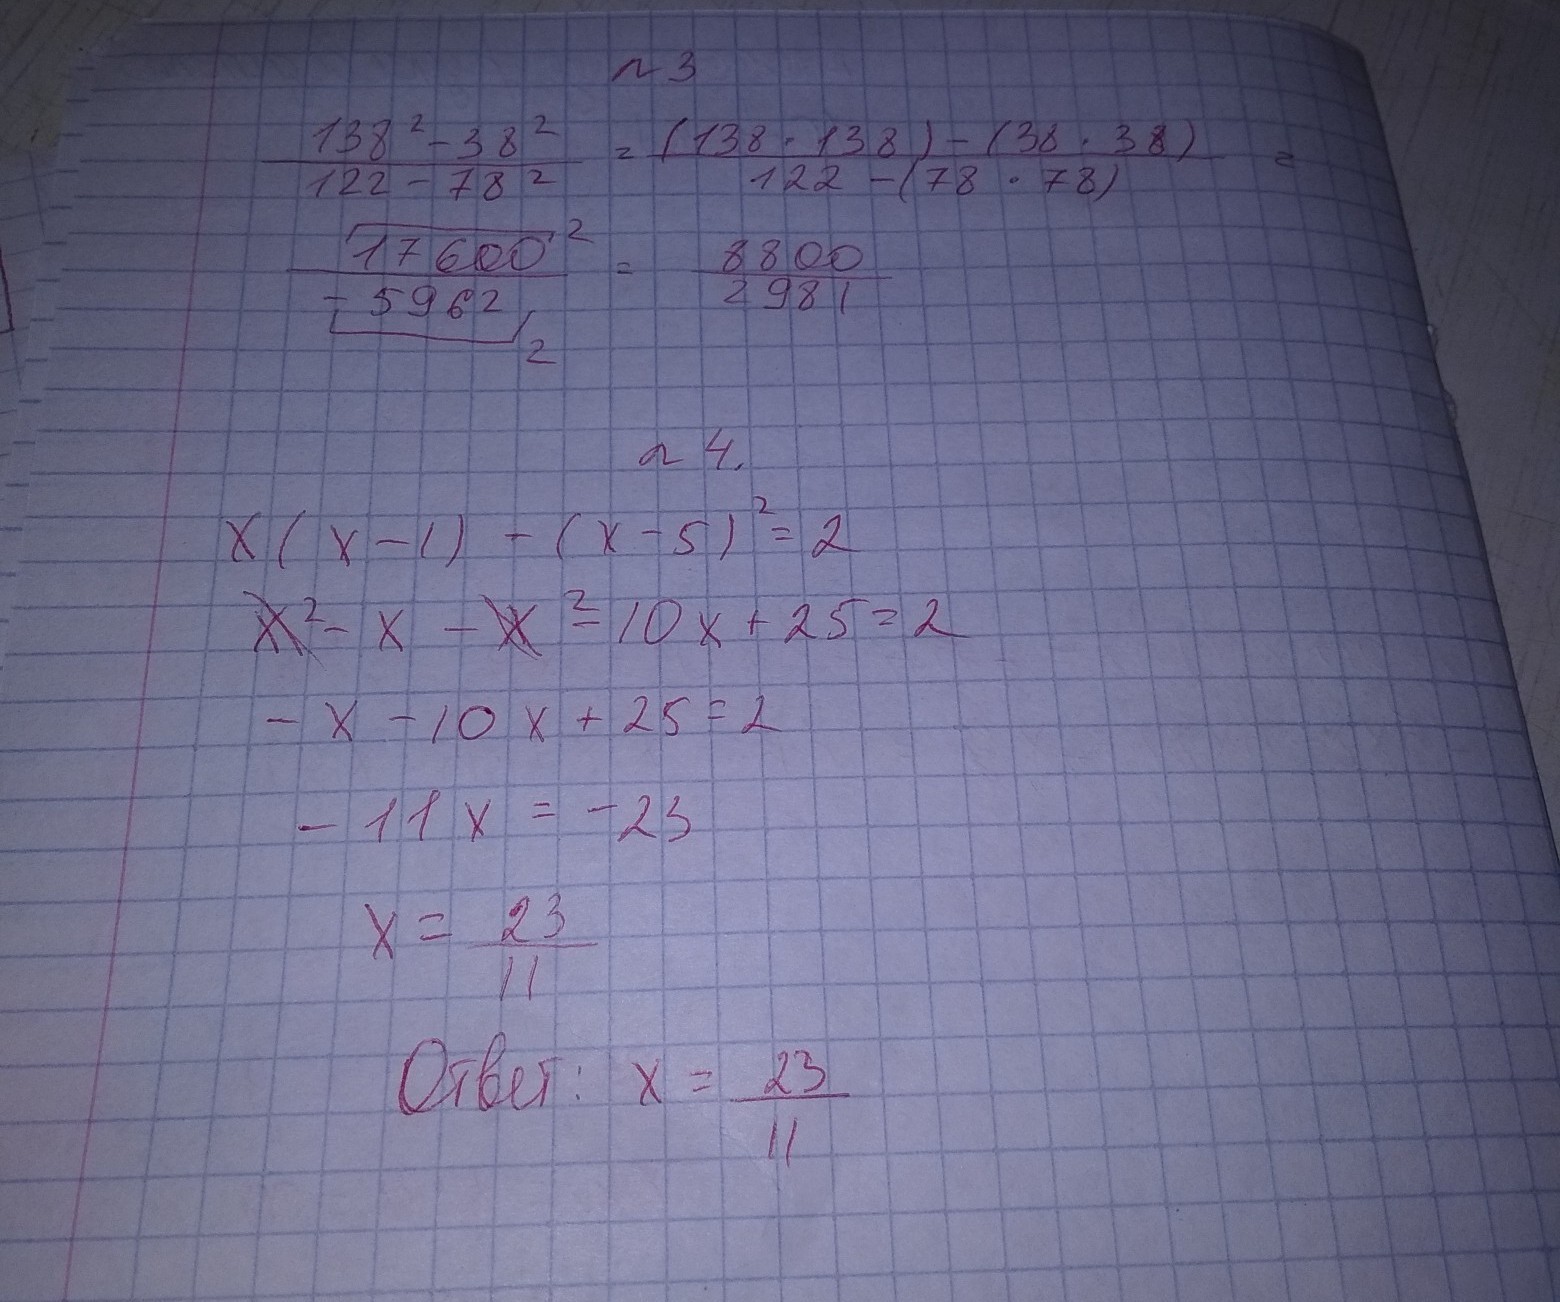 №3
138² - 38² / 122 - 78² = (138 · 138) - (38 · 38) / 122 - (78 · 78) =
17600 ² / -5962 ₂ = 8800 / 2981
№4.
x(x-1) - (x-5)² = 2
x² - x - x² - 10x + 25 = 2
-x - 10x + 25 = 2
-11x = -23
x = 23 / 11
Ответ: x = 23 / 11